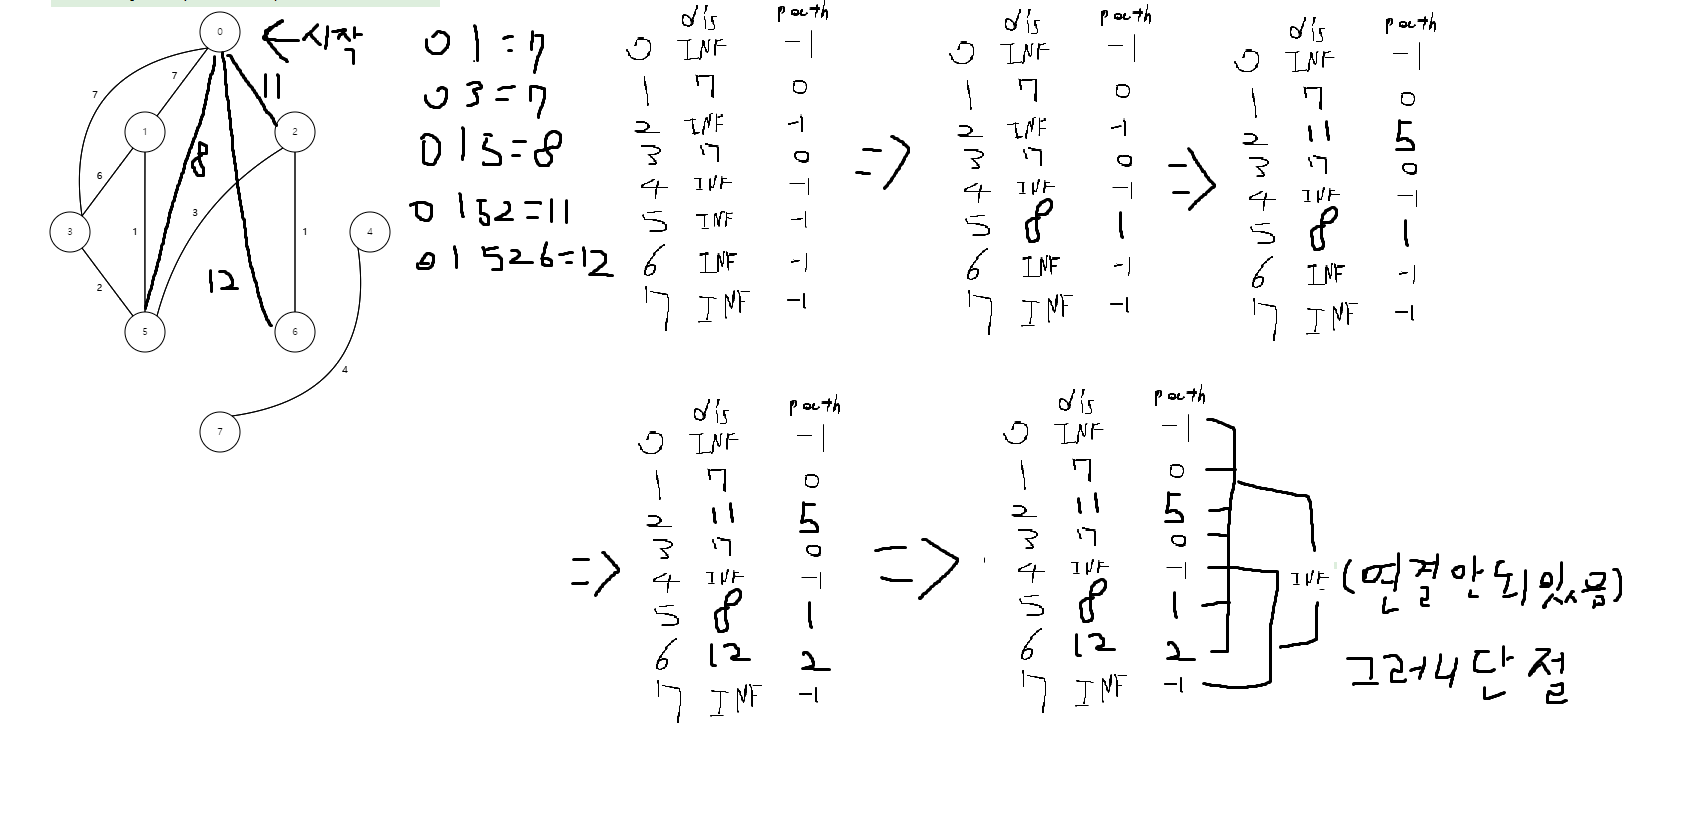 0 ← 시작
7
7
11
1
2
8
6
3
1
3
1
4
2
12
5
6
4
7
0 1 = 7
0 3 = 7
0 1 5 = 8
0 1 5 2 = 11
0 1 5 2 6 = 12
dis path
0 INF -1
1 7 0
2 INF -1
3 7 0
4 INF -1
5 INF -1
6 INF -1
7 INF -1
=>
dis path
0 INF -1
1 7 0
2 INF -1
3 7 0
4 INF -1
5 8 1
6 INF -1
7 INF -1
=>
dis path
0 INF -1
1 7 0
2 11 5
3 7 0
4 INF -1
5 8 1
6 INF -1
7 INF -1
=>
dis path
0 INF -1
1 7 0
2 11 5
3 7 0
4 INF -1
5 8 1
6 12 2
7 INF -1
=>
dis path
0 INF -1
1 7 0
2 11 5
3 7 0
4 INF -1
5 8 1
6 12 2
7 INF -1
INF (연결 안 되있음)
그러니 단절